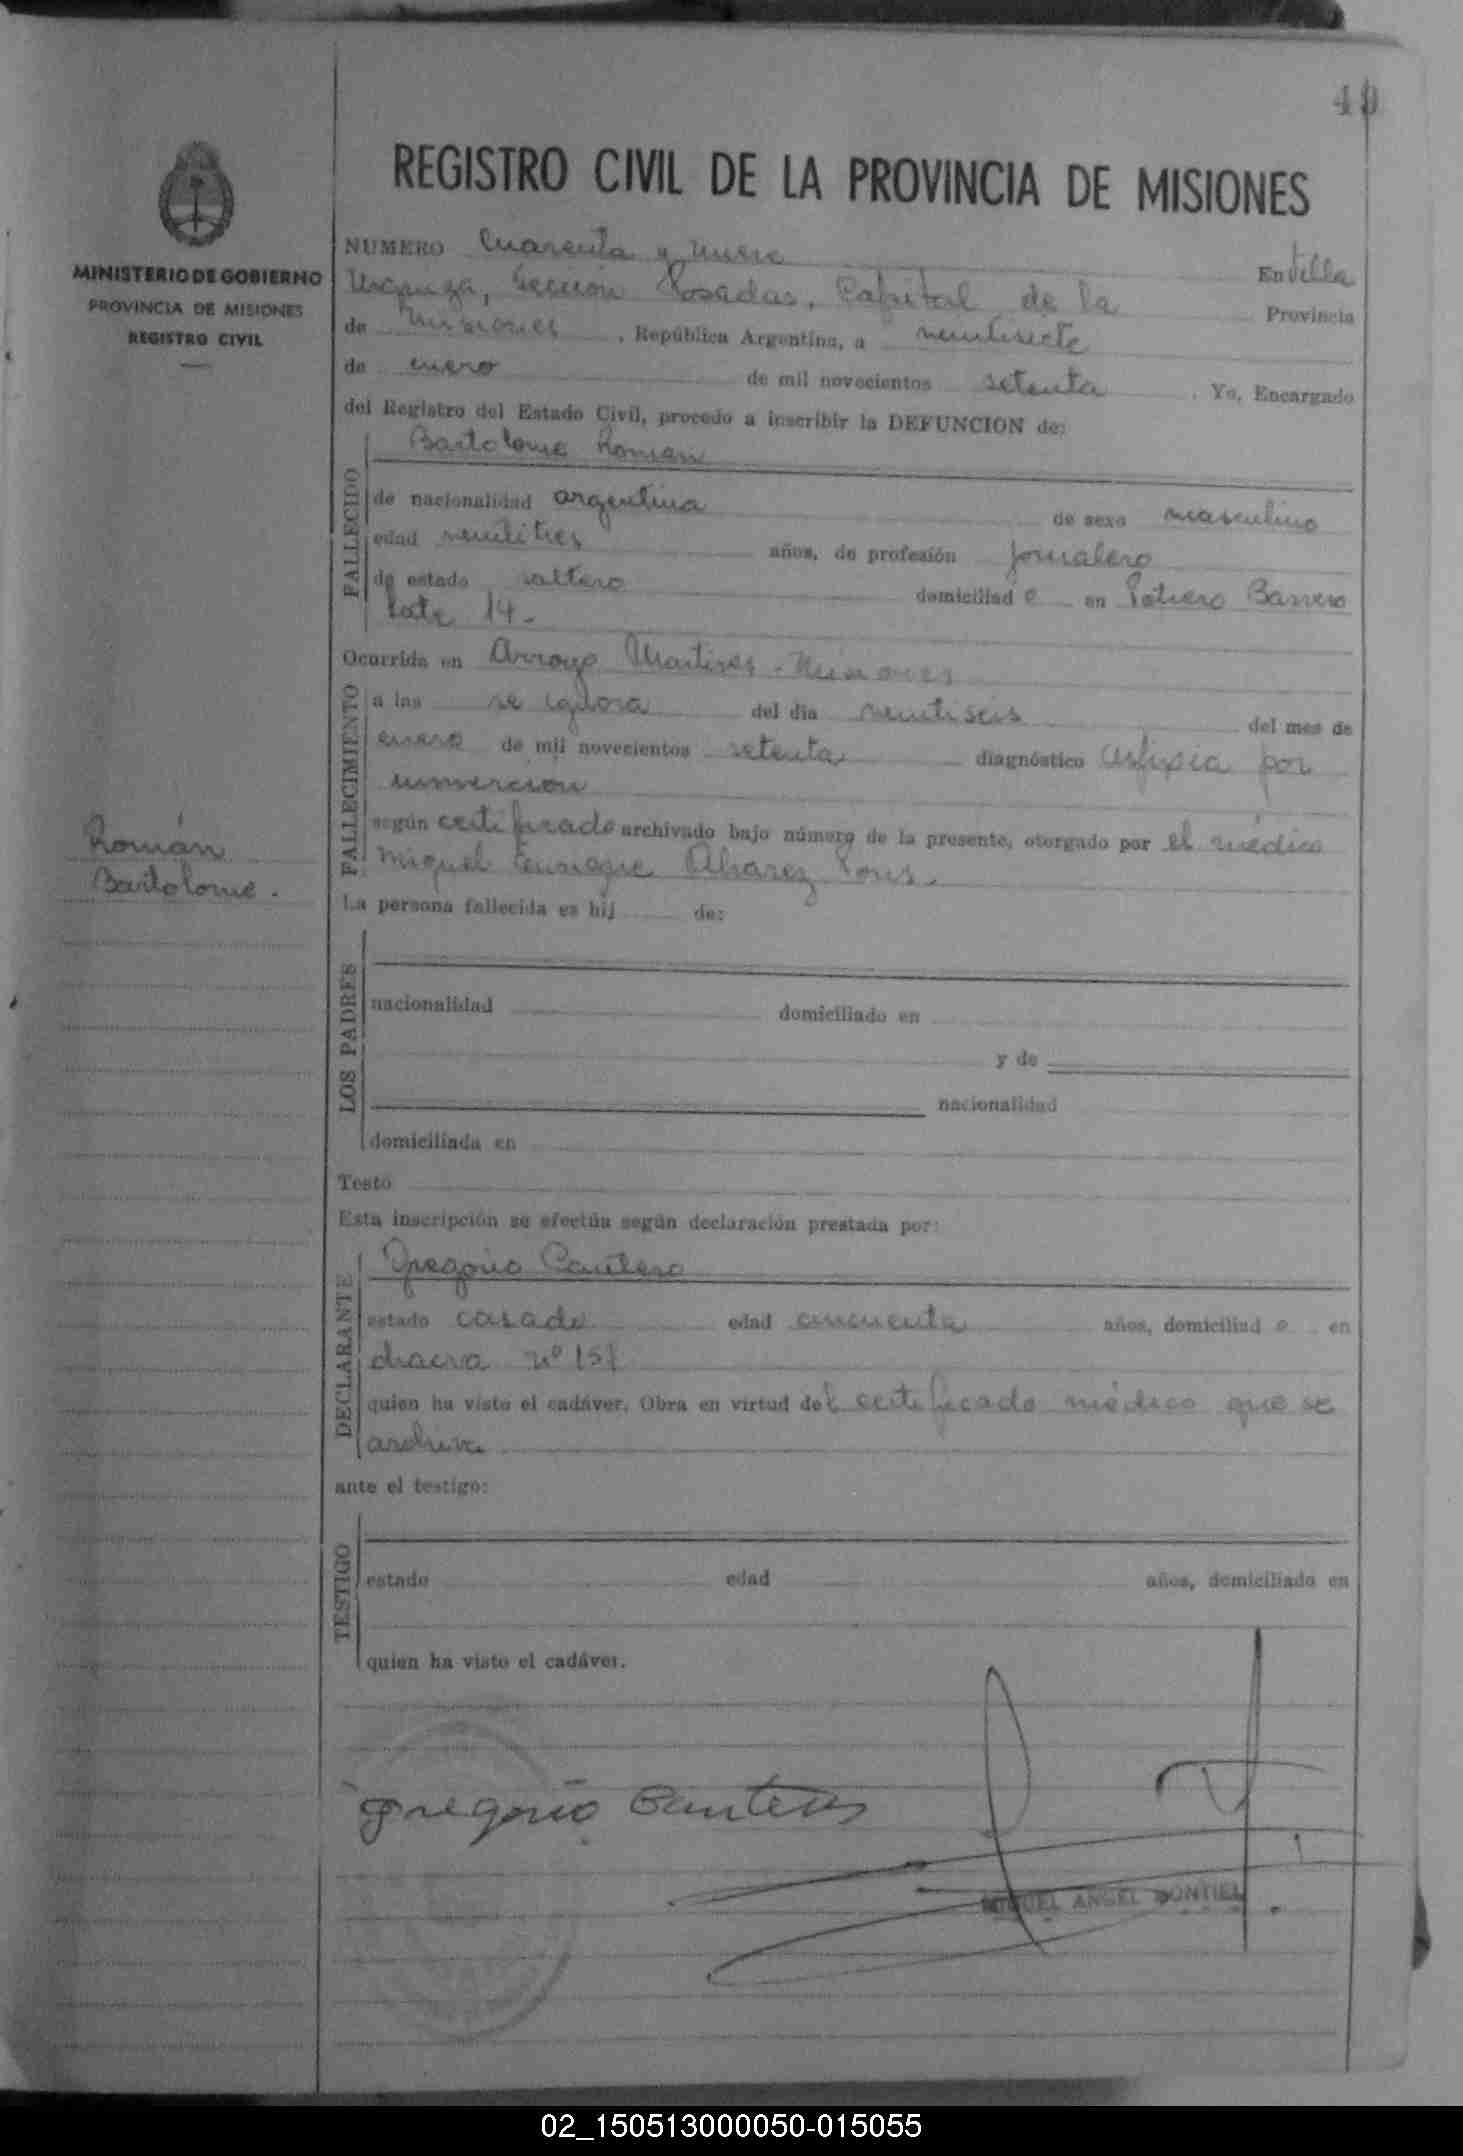 49
REGISTRO CIVIL DE LA PROVINCIA DE MISIONES
MINISTERIO DE GOBIERNO
PROVINCIA DE MISIONES
REGISTRO CIVIL
NUMERO Cuarenta y nueve En Villa
Urquiza, Sección Posadas, Capital de la Provincia
de Misiones, República Argentina, a veintisiete
de enero de mil novecientos setenta. Yo, Encargado
del Registro del Estado Civil, procedo a inscribir la DEFUNCION de:
FALLECIDO
Bartolome Roman
de nacionalidad argentina de sexo masculino
edad veintitres años, de profesión jornalero
de estado soltero domiciliad o en Potrero Barrero
Lote 14.-
Ocurrida en Arroyo Martires - Misiones
FALLECIMIENTO
a las se ignora del día veintiseis del mes de
enero de mil novecientos setenta diagnóstico asfixia por
inmercion
según certificado archivado bajo número de la presente, otorgado por el médico
Miguel Enrique Alvarez Pons.
Román
Bartolome.
La persona fallecida es hij de:
LOS PADRES
nacionalidad domiciliado en
y de
nacionalidad
domiciliada en
Testó
Esta inscripción se efectúa según declaración prestada por:
DECLARANTE
Gregorio Cantero
estado casado edad cincuenta años, domiciliad o en
chacra nº 151
quien ha visto el cadáver. Obra en virtud del certificado médico que se
archiva
ante el testigo:
TESTIGO
estado edad años, domiciliado en
quien ha visto el cadáver.
Gregorio Cantero
MIGUEL ANGEL
02_150513000050-015055